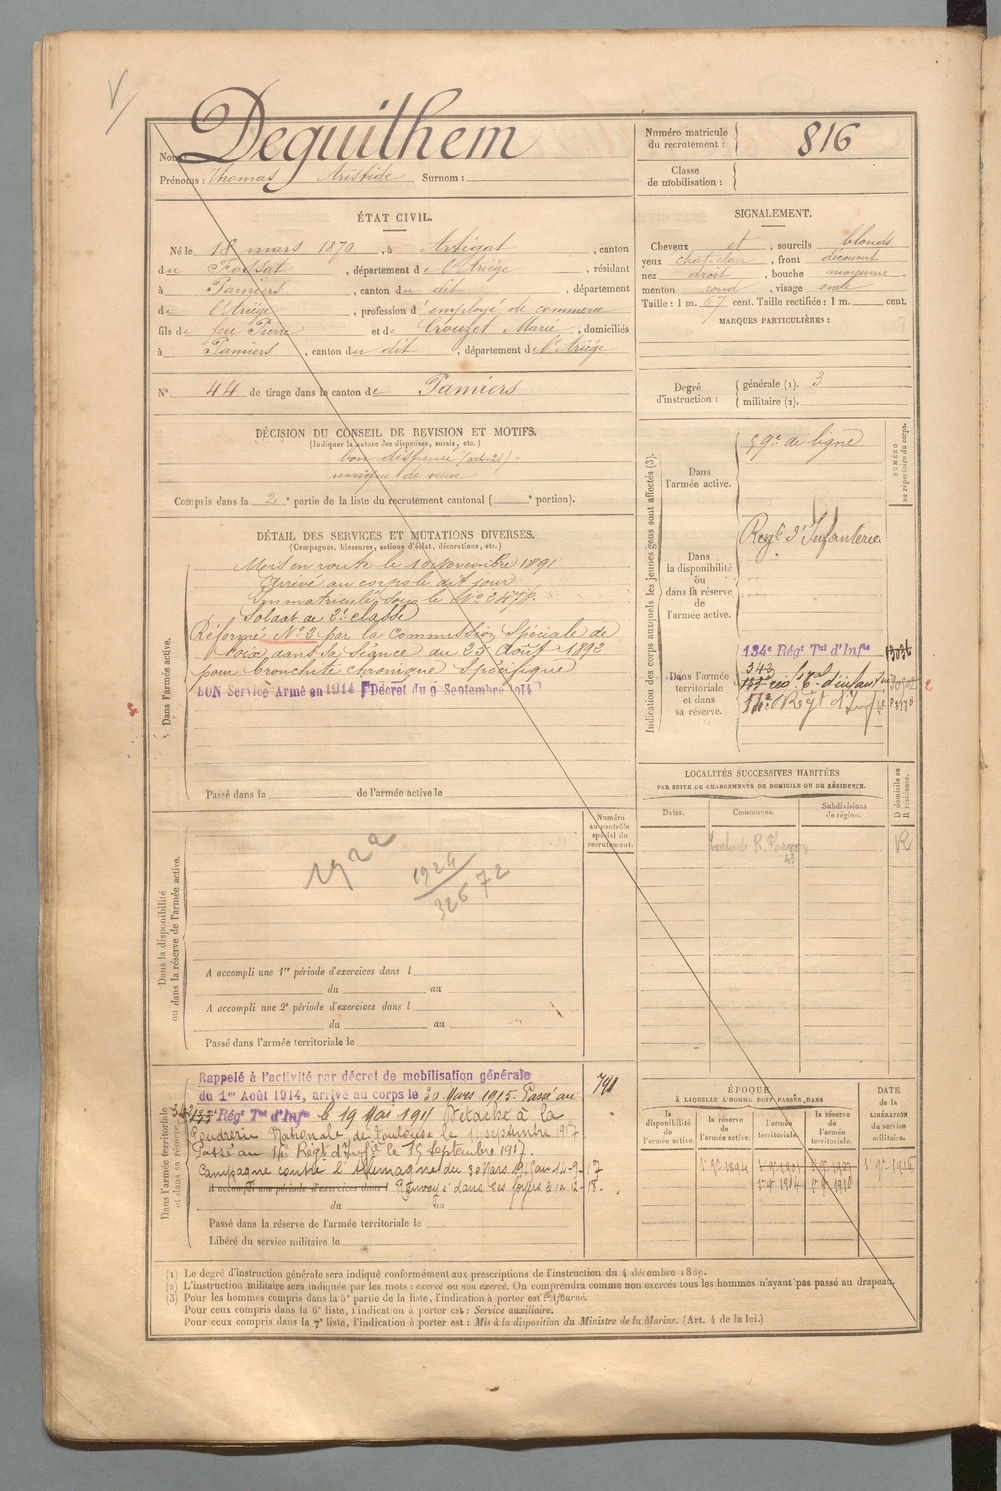 Deguilhem
Nom :
Prénoms : Thomas Aristide Surnom :
Numéro matricule du recrutement : 816
Classe de mobilisation :
ÉTAT CIVIL.
Né le 18 mars 1870, à Artigat, canton
du Fossat, département de l'Ariège, résidant
à Pamiers, canton du dit, département
de l'Ariège, profession d'employé de commerce
fils de feu Pierre et de Crouzet Marie, domiciliés
à Pamiers, canton du dit, département de l'Ariège
N° 44 de tirage dans le canton de Pamiers
SIGNALEMENT.
Cheveux et, sourcils blonds
yeux chat. clair, front découvert
nez droit, bouche moyenne
menton rond, visage ovale
Taille : 1 m. 67 cent. Taille rectifiée : 1 m. cent.
MARQUES PARTICULIÈRES :
Degré d'instruction : générale (1). 3
militaire (2).
DÉCISION DU CONSEIL DE REVISION ET MOTIFS.
(Indiquer la nature des dispenses, sursis, etc.)
bon dispensé (art. 21) -
unique de veuve
Compris dans la 2e partie de la liste du recrutement cantonal ( e portion).
DÉTAIL DES SERVICES ET MUTATIONS DIVERSES.
(Campagnes, blessures, actions d'éclat, décorations, etc.)
Dans l'armée active.
Mis en route le 10 Novembre 1891
Arrivé au corps le dit jour
Immatriculé sous le N° 3478.
Soldat de 2e classe
Réformé N° 2 par la Commission Spéciale de
Foix dans sa séance du 25 Août 1892
pour bronchite chronique Spécifique
BON Service Armé en 1914 Décret du 9 Septembre 1914
Passé dans la de l'armée active le
Indication des corps auxquels les jeunes gens sont affectés (3).
NUMÉRO au répertoire du corps.
Dans l'armée active.
59e de ligne
Dans la disponibilité ou dans la réserve de l'armée active.
Regt d'Infanterie
Dans l'armée territoriale et dans sa réserve.
134e Régt Tal d'Infie
343
14e Régt d'Infie
LOCALITÉS SUCCESSIVES HABITÉES
PAR SUITE DE CHANGEMENTS DE DOMICILE OU DE RÉSIDENCE.
Dates. Communes. Subdivisions de région. D domicile ou R résidence.
R
43
Numéro au contrôle spécial du recrutement.
Dans la disponibilité ou dans la réserve de l'armée active.
1922
1924
32672
A accompli une 1re période d'exercices dans l
du au
A accompli une 2e période d'exercices dans l
du au
Passé dans l'armée territoriale le
Dans l'armée territoriale et dans sa réserve.
Rappelé à l'activité par décret de mobilisation générale
du 1er Août 1914, arrivé au corps le 30 Mars 1915. Passé au
Régt Tal d'Infie le 19 Mai 1915 Détaché à la
Poudrerie Nationale de Toulouse le septembre 1917
Passé au 14e Régt d'Infie le 15 Septembre 1917.
Campagne contre l'Allemagne du 30 Mars 1915 au 14-9-17
A accompli une période d'exercices dans l Renvoyé dans ses foyers le 12-18.
du au
Passé dans la réserve de l'armée territoriale le
Libéré du service militaire le
ÉPOQUE
À LAQUELLE L'HOMME DOIT PASSER DANS
la disponibilité de l'armée active. la réserve de l'armée active. l'armée territoriale. la réserve de l'armée territoriale.
DATE de la LIBÉRATION du service militaire.
(1) Le degré d'instruction générale sera indiqué conformément aux prescriptions de l'instruction du 4 décembre 1889.
(2) L'instruction militaire sera indiquée par les mots : exercé ou non exercé. On comprendra comme non exercés tous les hommes n'ayant pas passé au drapeau.
(3) Pour les hommes compris dans la 5e partie de la liste, l'indication à porter est : Ajourné.
Pour ceux compris dans la 6e liste, l'indication à porter est : Service auxiliaire.
Pour ceux compris dans la 7e liste, l'indication à porter est : Mis à la disposition du Ministre de la Marine. (Art. 4 de la loi.)